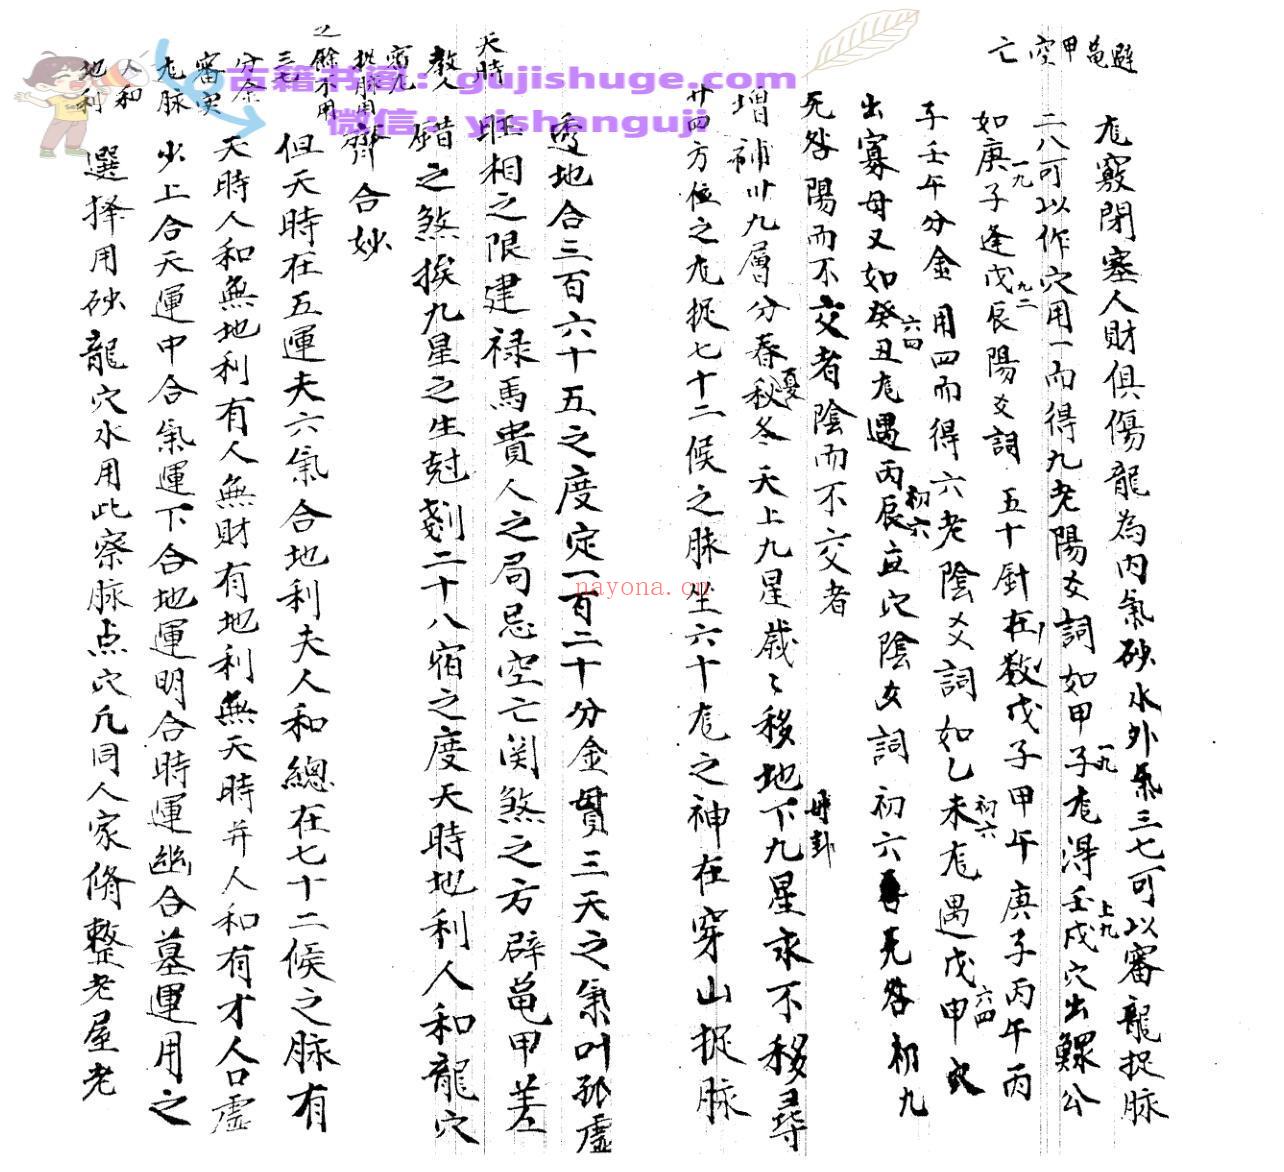 避
龜
甲
空
亡
尨竅閉塞人財俱傷龍為內氣砂水外氣三七可以審龍捉脉
二八可以作穴用一而得九老陽爻詞如甲子尨得壬戌穴出鰥公
一九
上九
如庚子逢戊辰陽爻詞 五十針在数戊子甲午庚子丙午丙
一九
九二
子壬午分金 用四而得六老陰爻詞如乙未尨遇戊申穴
初六
六四
出寡母又如癸丑尨遇丙辰 穴陰爻詞 初六 无咎初九
六四
初六
无咎陽而不交者陰而不交者
母卦
增補卅九層分春秋冬天上九星歲々移地下九星永不移尋
夏
廿四方位之尨捉七十二候之脉坐六十尨之神在穿山捉脉
透地合三百六十五之度定一百二十分金貫三天之氣叶孤虛
旺相之限建禄馬貴人之局忌空亡関煞之方辟龜甲差
錯之煞挨九星之生尅剗二十八宿之度天時地利人和龍穴
齊合妙
天時
教人
宿九
捉脉用
之餘不用
三七
分金
審穴
尨脉
人和
地利
但天時在五運夫六氣合地利夫人和總在七十二候之脉有
天時人和無地利有人無財有地利無天時并人和有才人口虛
火上合天運中合氣運下合地運明合時運幽合墓運用之
選擇用砂龍穴水用此察脉点穴凡同人家脩整老屋老
古籍书阁：gujishuge.com
微信：yishanguji
nayona.cn